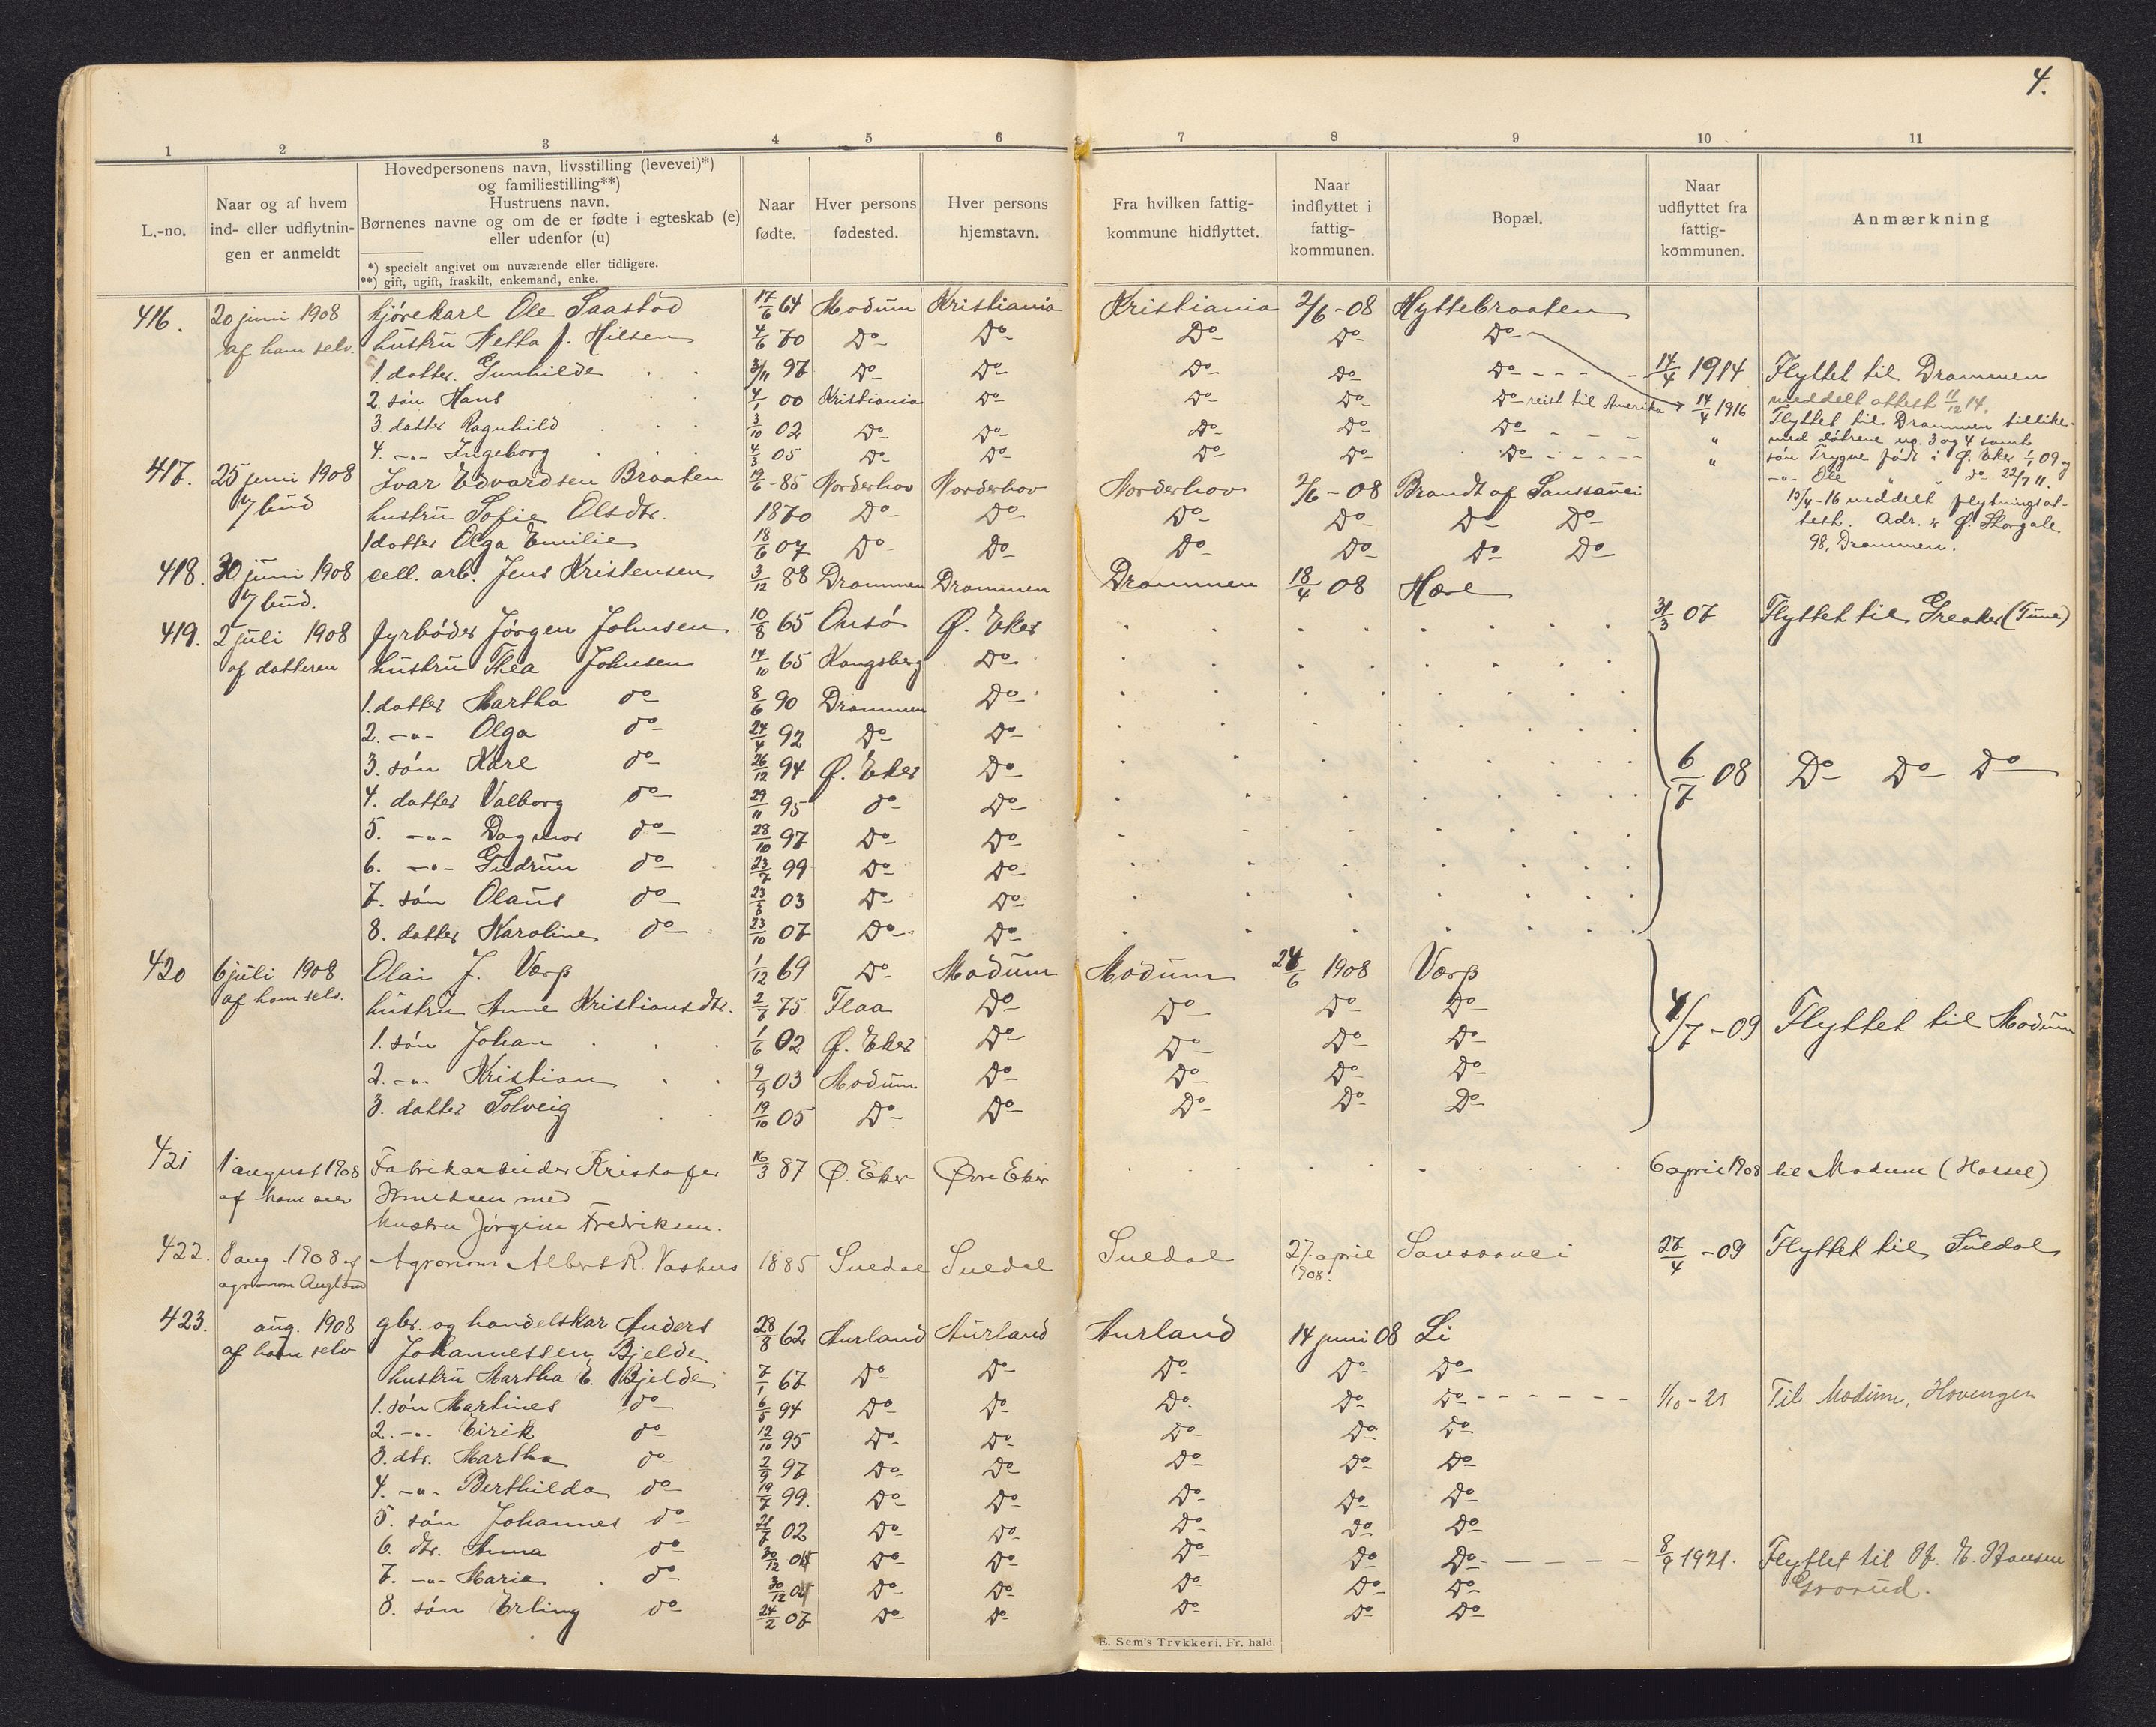 4.
1 2 3 4 5 6 7 8 9 10 11
L.-no.
Naar og af hvem
ind- eller udflytnin-
gen er anmeldt
Hovedpersonens navn, livsstilling (levevei)*)
og familiestilling**)
Hustruens navn.
Børnenes navne og om de er fødte i egteskab (e)
eller udenfor (u)
*) specielt angivet om nuværende eller tidligere.
**) gift, ugift, fraskilt, enkemand, enke.
Naar
fødte.
Hver persons
fødested.
Hver persons
hjemstavn.
Fra hvilken fattig-
kommune hidflyttet.
Naar
indflyttet i
fattig-
kommunen.
Bopæl.
Naar
udflyttet fra
fattig-
kommunen.
Anmærkning
416. 20 juni 1908 kjørekarl Ole Saastad 17/6 64 Modum Kristiania Kristiania 2/6-08 Hyttebraaten
af ham selv. hustru Netta J. Nilsen 4/6 70 Do Do Do Do Do
1. datter. Gunhilde 3/11 97 Do Do Do Do Do 14/4 1914 Flyttet til Drammen
meddelt attest 11/12 14.
2. søn Hans 4/1 00 Kristiania Do Do Do Do reist til Amerika 14/4 1916 Flyttet til Drammen tillike-
3. datter Ragnhild 3/10 02 Do Do Do Do Do " med døtrene ng. 3 og 4 samt
4. -"- Ingeborg 4/3 05 Do Do Do Do Do " søn Trygve født i Ø. Eker 1/1 09 og
-"- Ole " " do 22/7 11.
15/4-16 meddelt flytningsat-
test. Adr. Ø. Storgate
98, Drammen.
417. 25 juni 1908 Ivar Edvardsen Braaten 19/6-85 Norderhov Norderhov Norderhov 2/6-08 Brandt af Sanssouci
v/ bud hustru Sofie Olsdtr. 1870 Do Do Do Do Do Do
1 datter Olga Emilie 18/6 07 Do Do Do Do Do Do
418. 30 juni 1908 cell. arb. Jens Kristensen 3/12 88 Drammen Drammen Drammen 18/4 08 Hære
v/ bud.
419. 2 juli 1908 fyrbøder Jørgen Johnsen 10/8 65 Onsø Ø. Eker 31/3 07 Flyttet til Greaker (Tune)
af datteren hustru Thea Johnsen 14/10 65 Kongsberg Do
1. datter Martha do 8/6 90 Drammen Do
2. -"- Olga do 24/4 92 Do Do
3. søn Karl do 26/12 94 Ø. Eker Do 6/7 08 Do Do Do
4. datter Valborg do 29/11 95 do Do
5. -"- Dagmar do 28/10 97 Do Do
6. -"- Gudrun do 23/7 99 Do Do
7. søn Olaus do 23/3 03 Do Do
8. datter Karoline do 23/10 07 Do Do
420 6 juli 1908 Olai J. Varp 1/12 69 Do Modum Modum 24/6 1908 Varp
af ham selv. hustru Anne Kristiansdtr. 2/7 75 Flaa Do Do Do Do 4/7-09 Flyttet til Modum
1. søn Johan 1/6 02 Ø. Eker Do Do Do Do
2. -"- Kristian 9/9 03 Modum Do Do Do Do
3. datter Solveig 19/10 05 Do Do Do Do Do
421 1 august 1908 Fabrikarbeider Kristofer 16/3 87 Ø. Eker Øvre Eker 6 april 1908 til Modum (Hassel)
af ham selv Knudsen med
hustru Jørgine Fredriksen.
422. 8 aug. 1908 af Agronom Albert R. Vashus 1885 Suedal Suedal Suedal 27. april Sanssouci 27/4-09 Flyttet til Suledal
agronom Augland 1908.
423. aug. 1908 gbr. og handelskar Anders 28/8 62 Aurland Aurland Aurland 14 juni 08 Li
af ham selv Johannessen Bjelde
hustru Martha E. Bjelde 7/1 67 Do Do Do Do Do
1. søn Martines do 6/5 94 Do Do Do. Do Do 1/10-21 Til Modum, Hovengen
2. -"- Eirik do 12/10 95 Do Do Do Do Do
3. dtr. Martha do 2/9 97 Do Do Do Do Do
4. -"- Berthilda do 19/7 99. Do Do Do Do Do
5. søn Johannes do 21/7 02 Do Do Do Do Do
6. dtr. Anna do 30/12 04 Do Do Do Do Do 8/9 1921. Flyttet til
7. -"- Maria do 30/12 04 Do Do Do Do Do Grorud.
8. søn Erling do 24/2 07 Do Do Do Do Do
E. Sem's Trykkeri. Fr. hald.